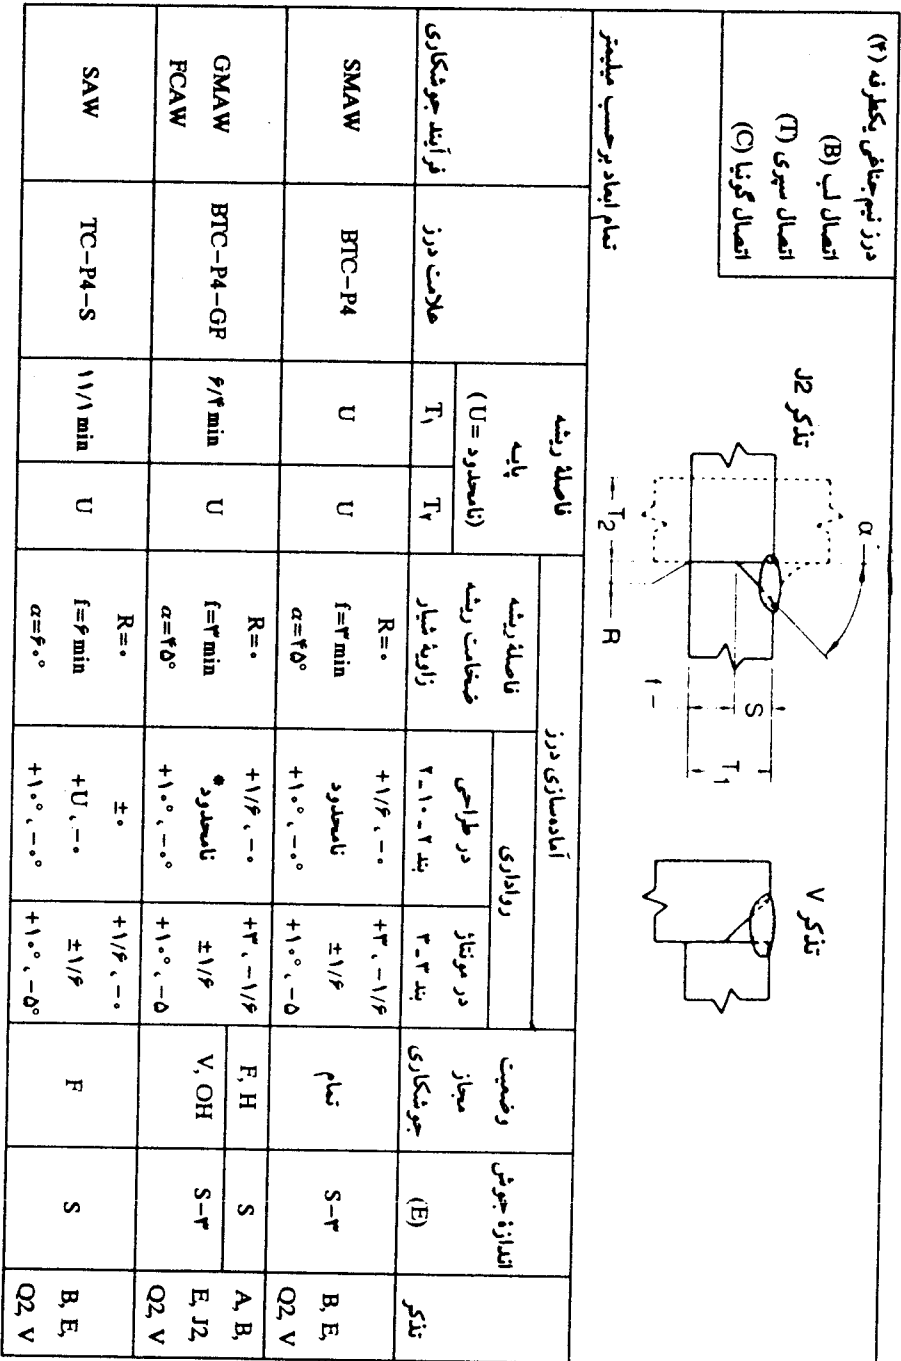 درز نیم‌جناغی یکطرفه (۴)
اتصال لب (B)
اتصال سپری (T)
اتصال گونیا (C)
تمام ابعاد برحسب میلیمتر
تذکر J2
α
T2
R
S
f
T1
تذکر V
فرآیند جوشکاری
علامت درز
فاصلهٔ ریشه
پایه
(U= نامحدود)
T۱
T۲
آماده‌سازی درز
فاصلهٔ ریشه
ضخامت ریشه
زاویهٔ شیار
رواداری
در طراحی
بند ۲-۱۰-۲
در مونتاژ
بند ۳-۳
وضعیت
مجاز
جوشکاری
اندازهٔ جوش
(E)
تذکر
SMAW
BTC-P4
U
U
R=۰
f=۳ min
α=۴۵°
+۱/۶، -۰
نامحدود
+۱۰°، -۰°
+۳، -۱/۶
±۱/۶
+۱۰°، -۵
تمام
S-۳
B, E,
Q2, V
GMAW
FCAW
BTC-P4-GF
۶/۴ min
U
R=۰
f=۳ min
α=۴۵°
+۱/۶، -۰
نامحدود*
+۱۰°، -۰°
+۳، -۱/۶
±۱/۶
+۱۰°، -۵
F, H
V, OH
S
S-۳
A, B,
E, J2,
Q2, V
SAW
TC-P4-S
۱۱/۱ min
U
R=۰
f=۶ min
α=۶۰°
±۰
+U، -۰
+۱۰°، -۰°
+۱/۶، -۰
±۱/۶
+۱۰°، -۵°
F
S
B, E,
Q2, V